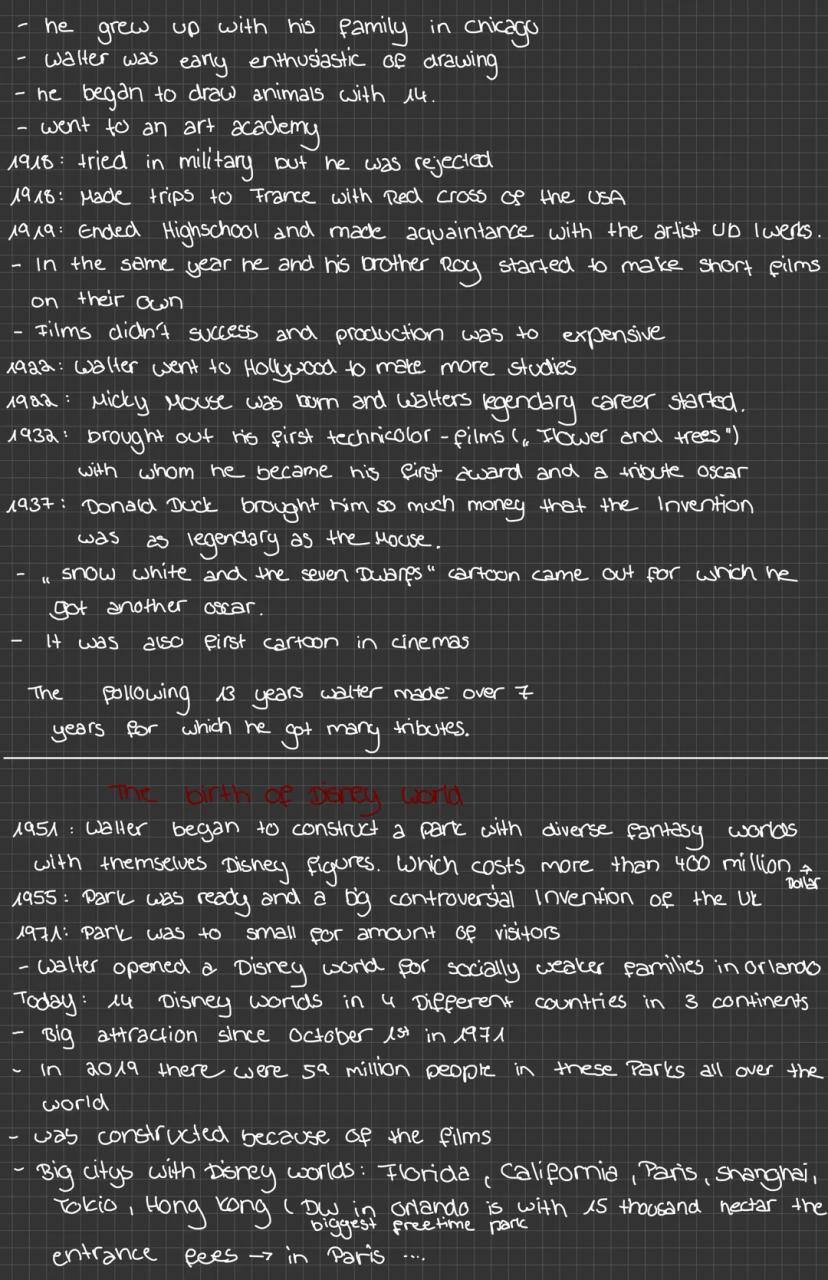 - he grew up with his family in Chicago
- Walter was early enthusiastic of drawing
- he began to draw animals with 14.
- went to an art academy
1918: tried in military but he was rejected
1918: Made trips to France with Red Cross of the USA
1919: Ended Highschool and made aquaintance with the artist Ub Iwerks.
- In the same year he and his brother Roy started to make short films
on their own
- Films didn't success and production was to expensive
1922: Walter went to Hollywood to make more studies
1922: Micky Mouse was born and Walters legendary career started.
1932: brought out his first technicolor-films („Flower and trees")
with whom he became his first award and a tribute oscar
1937: Donald Duck brought him so much money that the Invention
was as legendary as the Mouse.
- „snow white and the seven Dwarfs" cartoon came out for which he
got another oscar.
- It was also first cartoon in cinemas
The following 13 years walter made over 7
years for which he got many tributes.
The birth of Disney World
1951: Walter began to construct a park with diverse fantasy worlds
with themselves Disney figures. Which costs more than 400 million →
Dollar
1955: Park was ready and a big controversial Invention of the UK
1971: Park was to small for amount of visitors
- Walter opened a Disney world for socially weaker families in Orlando
Today: 14 Disney worlds in 4 Different countries in 3 continents
- Big attraction since October 1st in 1971
- In 2019 there were 59 million people in these Parks all over the
world
- was constructed because of the films
- Big citys with Disney worlds: Florida, California, Paris, Shanghai,
Tokio, Hong Kong (DW in Orlando is with 15 thousand hectar the
biggest freetime park
entrance fees → in Paris ....